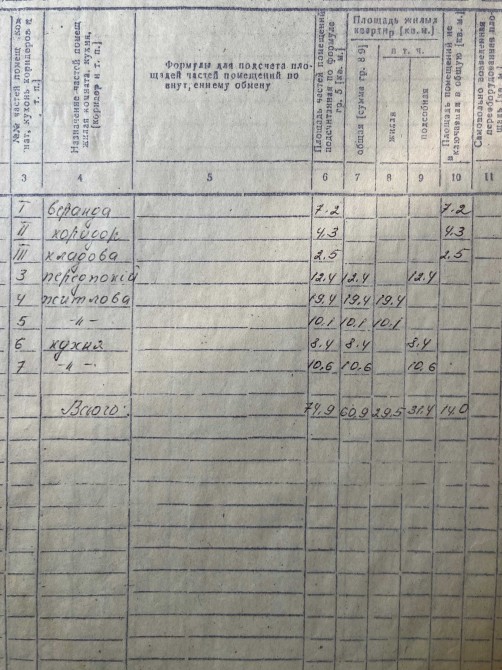 №№ частей помещ. ком
нат, кухонь коридоров и
т. п.)
Назначение частей помещ
жилая комната, кухня,
[коридор и т. п.]
Формулы для подсчета пло-
щадей частей помещений по
внут,еннему обмену
Площадь частей помещений
подсчитанная по формуле
гр. 5 [кв. м.]
Площадь жилых
квартир [кв. м.]
общая [сумма гр. 8 9]
в т. ч.
жилая
подсобная
Площадь помещений не
включаемая в общую [кв. м.]
Самовольно возведенная
переоборудованная пло-
щадь [кв. м.]
3 4 5 6 7 8 9 10 11
I веранда 7.2 7.2
II коридор 4.3 4.3
III кладова 2.5 2.5
3 передпокій 12.4 12.4 12.4
4 житлова 19.4 19.4 19.4
5 -〃- 10.1 10.1 10.1
6 кухня 8.4 8.4 8.4
7 -〃- 10.6 10.6 10.6
Всього: 74.9 60.9 29.5 31.4 14.0